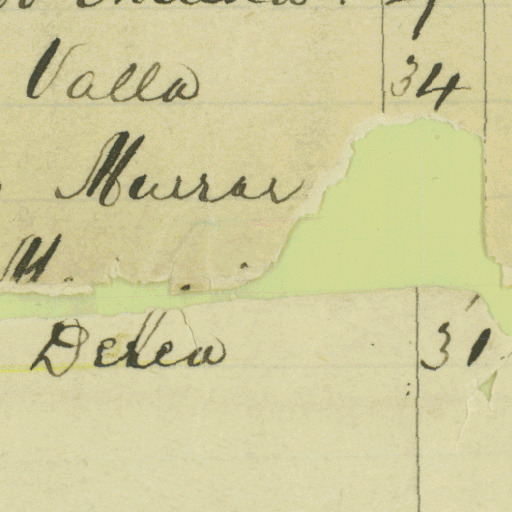 Valla 34
Murrar
M.
Derea 31